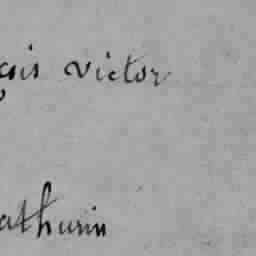 çois victor
athurin